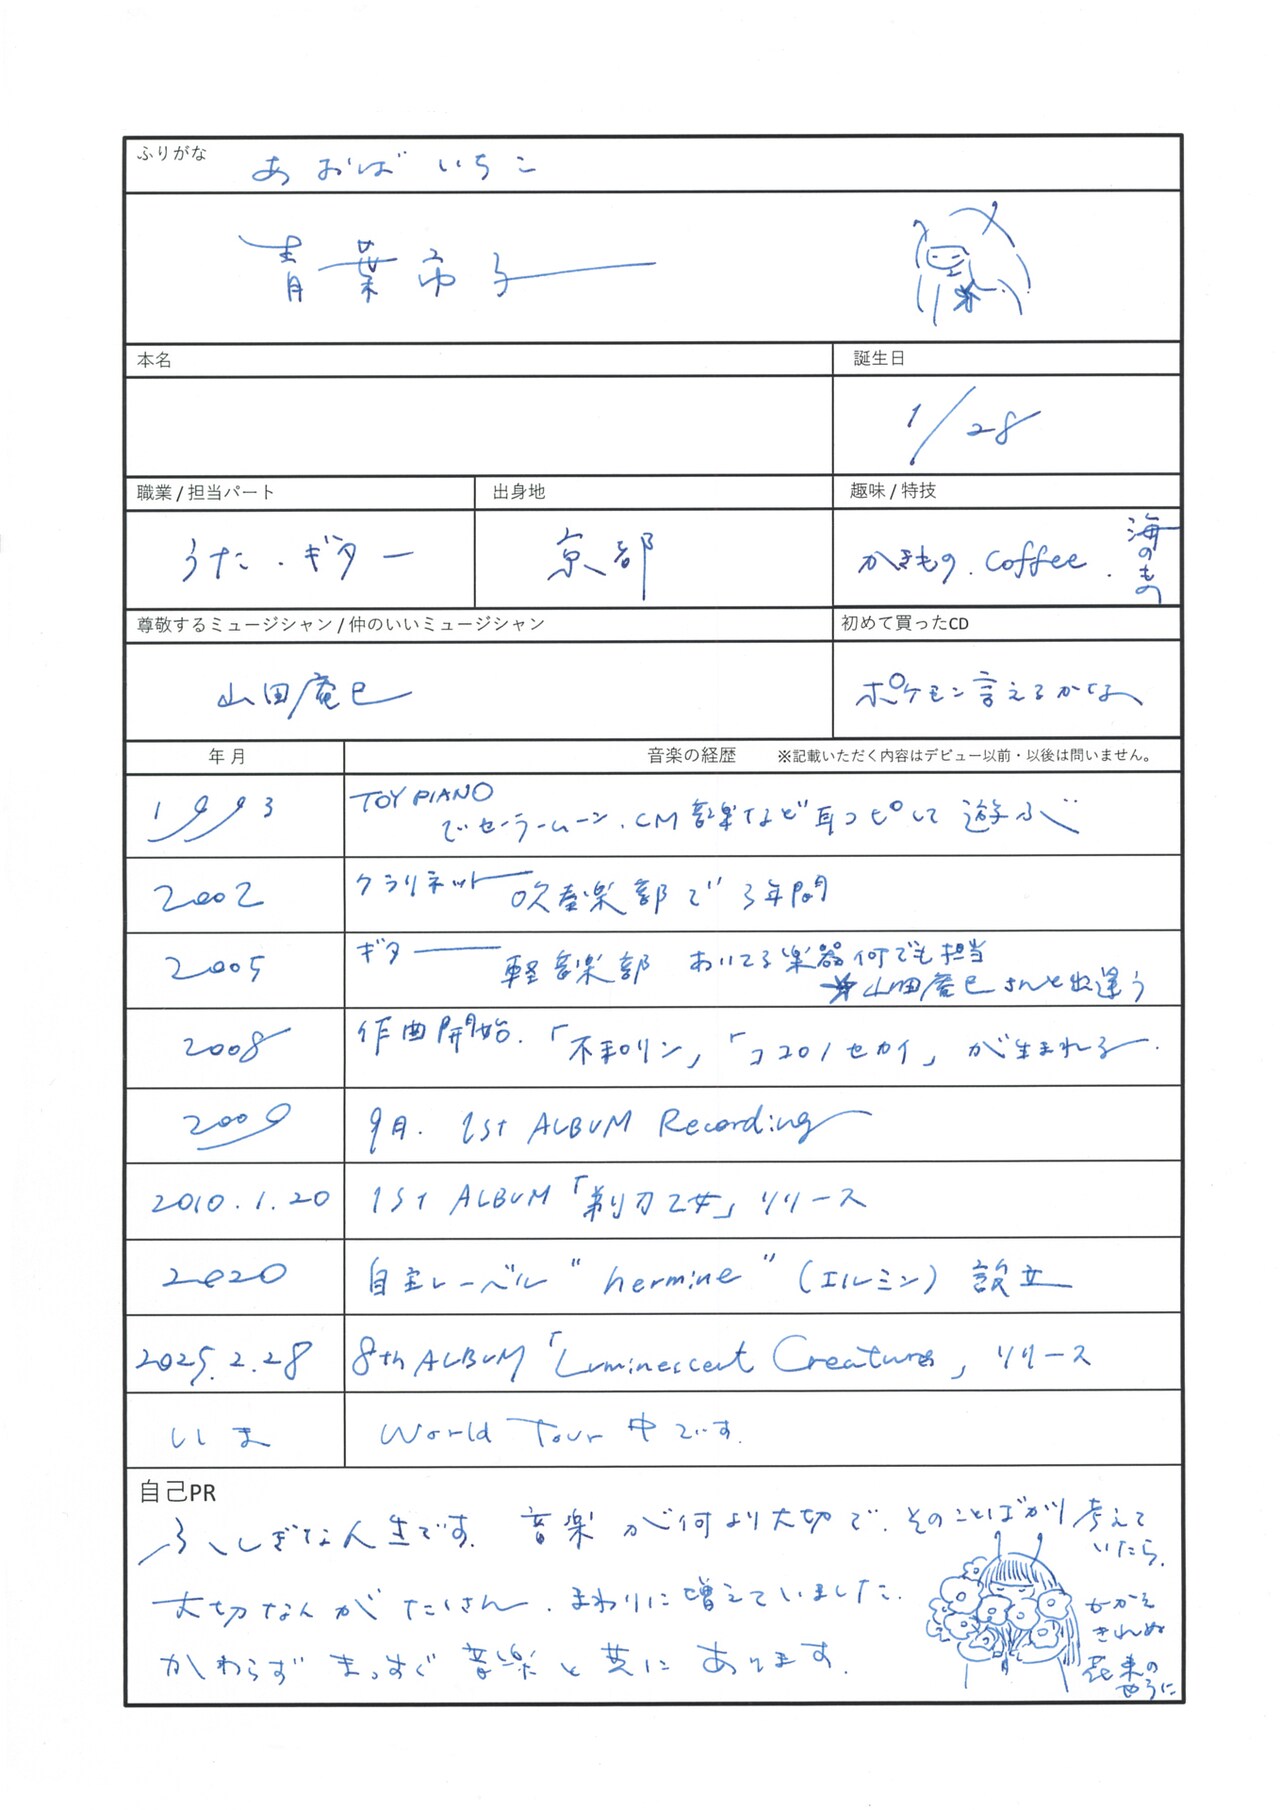 ふりがな
あおば いちこ
青葉市子
本名
誕生日
1/28
職業 / 担当パート
出身地
趣味 / 特技
うた・ギター
京都
かきもの. coffee. 海のもの
尊敬するミュージシャン / 仲のいいミュージシャン
初めて買ったCD
山田庵巳
ポケモン言えるかな
年月
音楽の経歴 ※記載いただく内容はデビュー以前・以後は問いません。
1993
TOY PIANO
でセーラームーン、CM音楽など耳コピして遊ぶ
2002
クラリネット 吹奏楽部で3年間
2005
ギター 軽音楽部 おいてる楽器何でも担当
山田庵巳さんと出逢う
2008
作曲開始.「不和リン」「ココロノセカイ」が生まれる.
2009
9月. 1st ALBUM Recording
2010.1.20
1st ALBUM「剃刀乙女」リリース
2020
自主レーベル"hermine"(エルミン)設立
2025.2.28
8th ALBUM「Luminescent Creatures」リリース
いま
World Tour中です.
自己PR
ふしぎな人生です. 音楽が何より大切で、そのことばかり考えて
いたら、
大切な人がたくさん、まわりに増えていました.
かわらずまっすぐ音楽と共にあります.
かかえ
きれぬ
花束の
ように